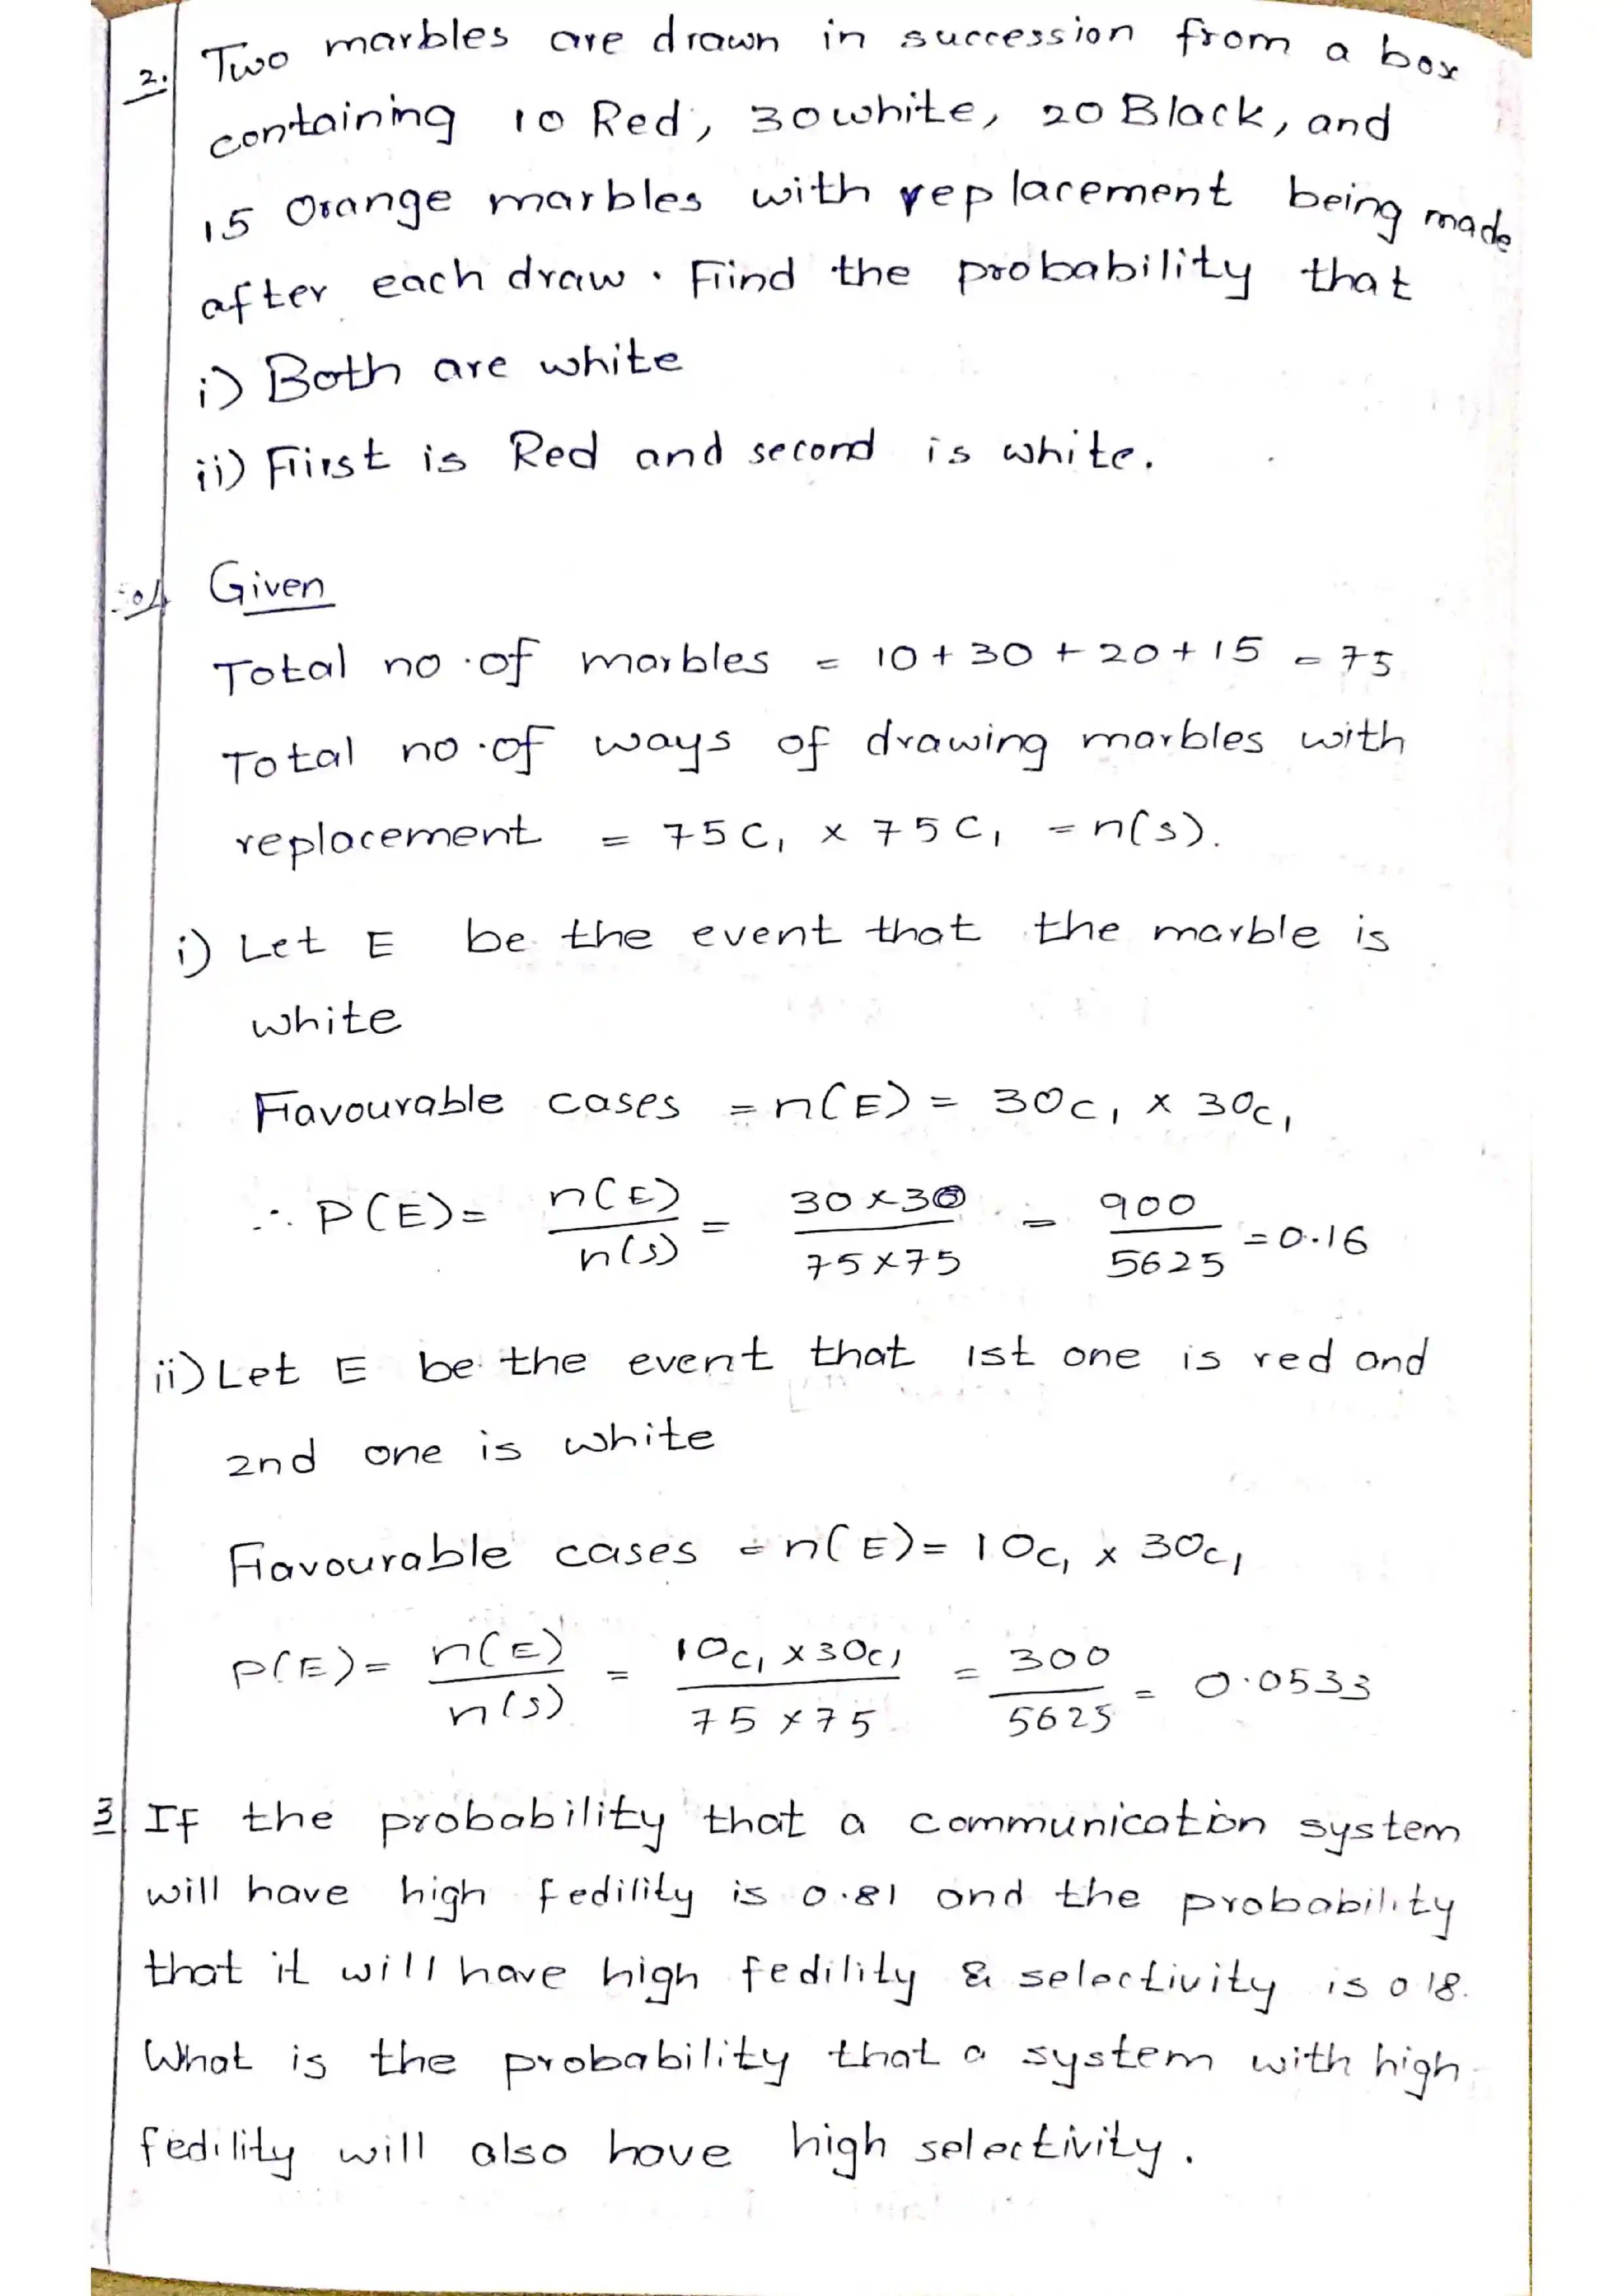 2. Two marbles are drawn in succession from a box
containing 10 Red, 30 white, 20 Black, and
15 Orange marbles with replacement being made
after each draw. Find the probability that
i) Both are white
ii) First is Red and second is white.
Given
Total no. of marbles = 10 + 30 + 20 + 15 = 75
Total no. of ways of drawing marbles with
replacement = 75C₁ × 75C₁ = n(s).
i) Let E be the event that the marble is
white
Favourable cases = n(E) = 30C₁ × 30C₁
∴ P(E) = n(E)/n(s) = 30×30/75×75 = 900/5625 = 0.16
ii) Let E be the event that 1st one is red and
2nd one is white
Favourable cases = n(E) = 10C₁ × 30C₁
P(E) = n(E)/n(s) = 10C₁ × 30C₁/75×75 = 300/5625 = 0.0533
3 If the probability that a communication system
will have high fedility is 0.81 and the probability
that it will have high fedility & selectivity is 0.18.
What is the probability that a system with high
fedility will also have high selectivity.